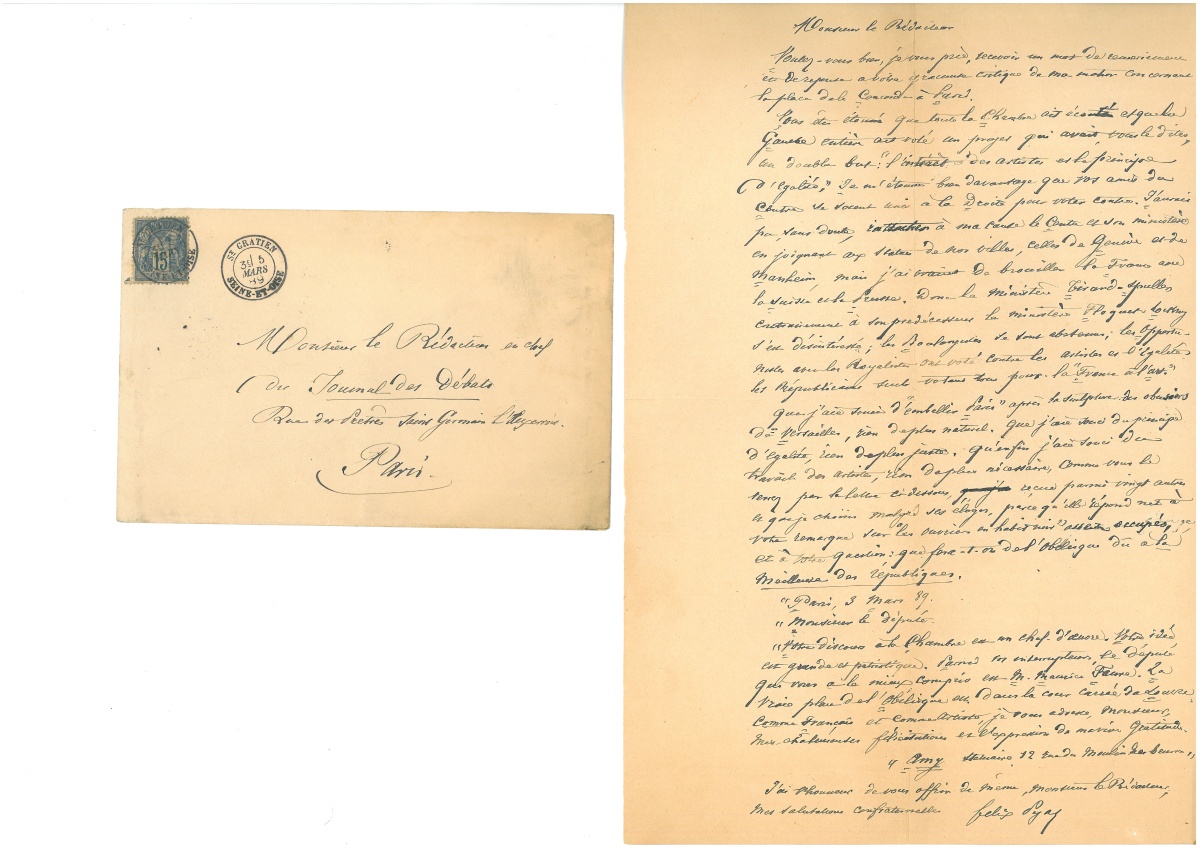 15
St GRATIEN
5
MARS
89
SEINE-ET-OISE
Monsieur le Rédacteur en chef
du Journal des Débats
Rue des Prêtres Saint Germain l'Auxerrois.
Paris.
Monsieur le Rédacteur
Voulez-vous bien, je vous prie, recevoir un mot de remerciement
et de réponse à votre gracieuse critique de ma motion concernant
la place de la Concorde à Paris.
Vous êtes étonné que toute la Chambre ait écouté et que la
Gauche entière ait voté un projet qui avait, vous le dites,
un double but: "l'intérêt des artistes et le principe
d'Egalité," Je m'étonne bien davantage que vos amis du
Centre se soient unis à la Droite pour voter contre. J'aurais
pu, sans doute, à ma cause le Centre et son ministère
en joignant aux statues de nos villes, celles de Genève et de
Manheim, mais j'ai craint de brouiller la France avec
la Suisse et la Prusse. Donc le ministère Tirard-Spuller
contrairement à son prédécesseur le ministère Floquet-Lockroy
s'est désintéressé; les Boulangistes se sont abstenus; les Opportu-
nistes avec les Royalistes ont voté contre les artistes et l'Egalité;
les Républicains seuls votant tous pour la "France et l'art."
Que j'aie souci d'"embellir Paris" après la sculpture des obusiers
de Versailles, rien de plus naturel. Que j'aie souci du principe
d'Egalité, rien de plus juste. Qu'enfin j'aie souci du
travail des artistes, rien de plus nécessaire, comme vous le
verrez par la lettre ci-dessous, reçue parmi vingt autres
et que je choisis malgré ses éloges, parce qu'elle répond net à
votre remarque sur les ouvriers en habit noir
et à votre question: que fera-t-on de l'Obélisque dû à la
Meilleure des républiques.
"Paris, 3 Mars 89.
"Monsieur le député.
"Votre discours à la Chambre est un chef-d'œuvre. Votre idée
est grande et patriotique. Parmi vos interrupteurs, le député
qui vous a le mieux compris est M. Maurice Faure. La
vraie place de l'Obélisque est dans la cour carrée du Louvre.
Comme Français et comme Artiste, je vous adresse, Monsieur,
mes chaleureuses félicitations et l'expression de ma vive Gratitude.
" Amy statuaire, 12 rue du Moulin de Beurre,"
J'ai l'honneur de vous offrir de même, Monsieur le Rédacteur,
mes salutations confraternelles
felix Pyat